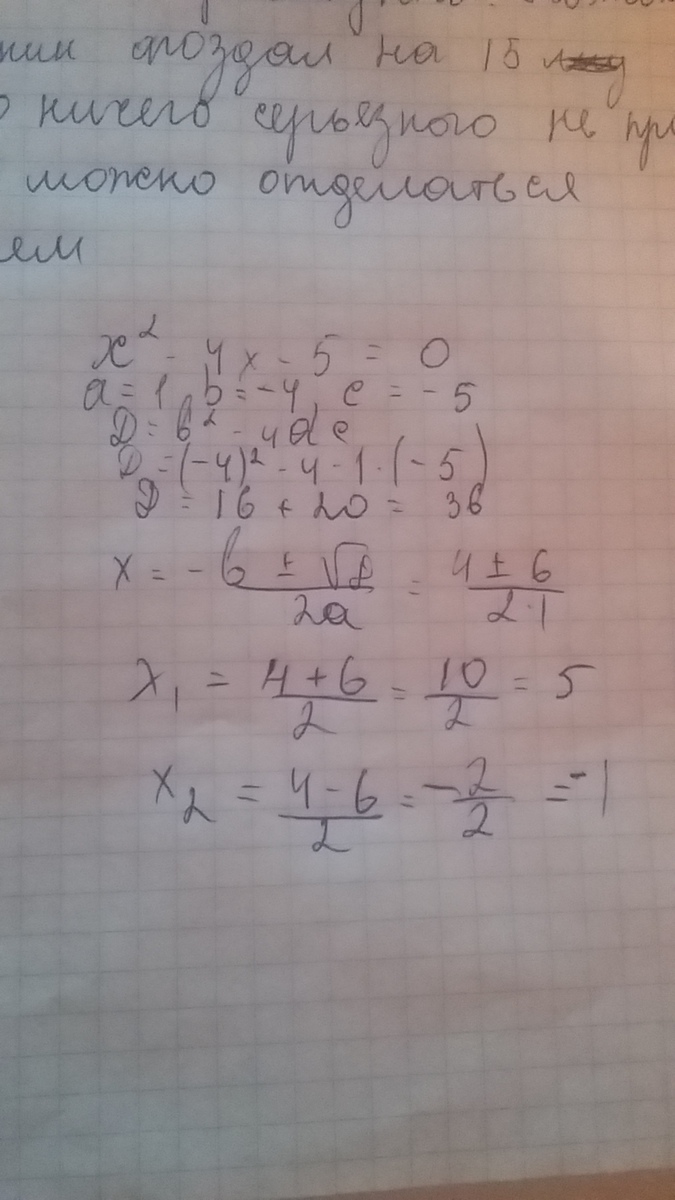 опоздал на 15
ничего серьезного не
можно отделаться
x² - 4x - 5 = 0
a = 1, b = -4, c = -5
D = b² - 4ac
D = (-4)² - 4 · 1 · (-5)
D = 16 + 20 = 36
x = -b ± √D / 2a = 4 ± 6 / 2 · 1
x₁ = 4 + 6 / 2 = 10 / 2 = 5
x₂ = 4 - 6 / 2 = -2 / 2 = -1